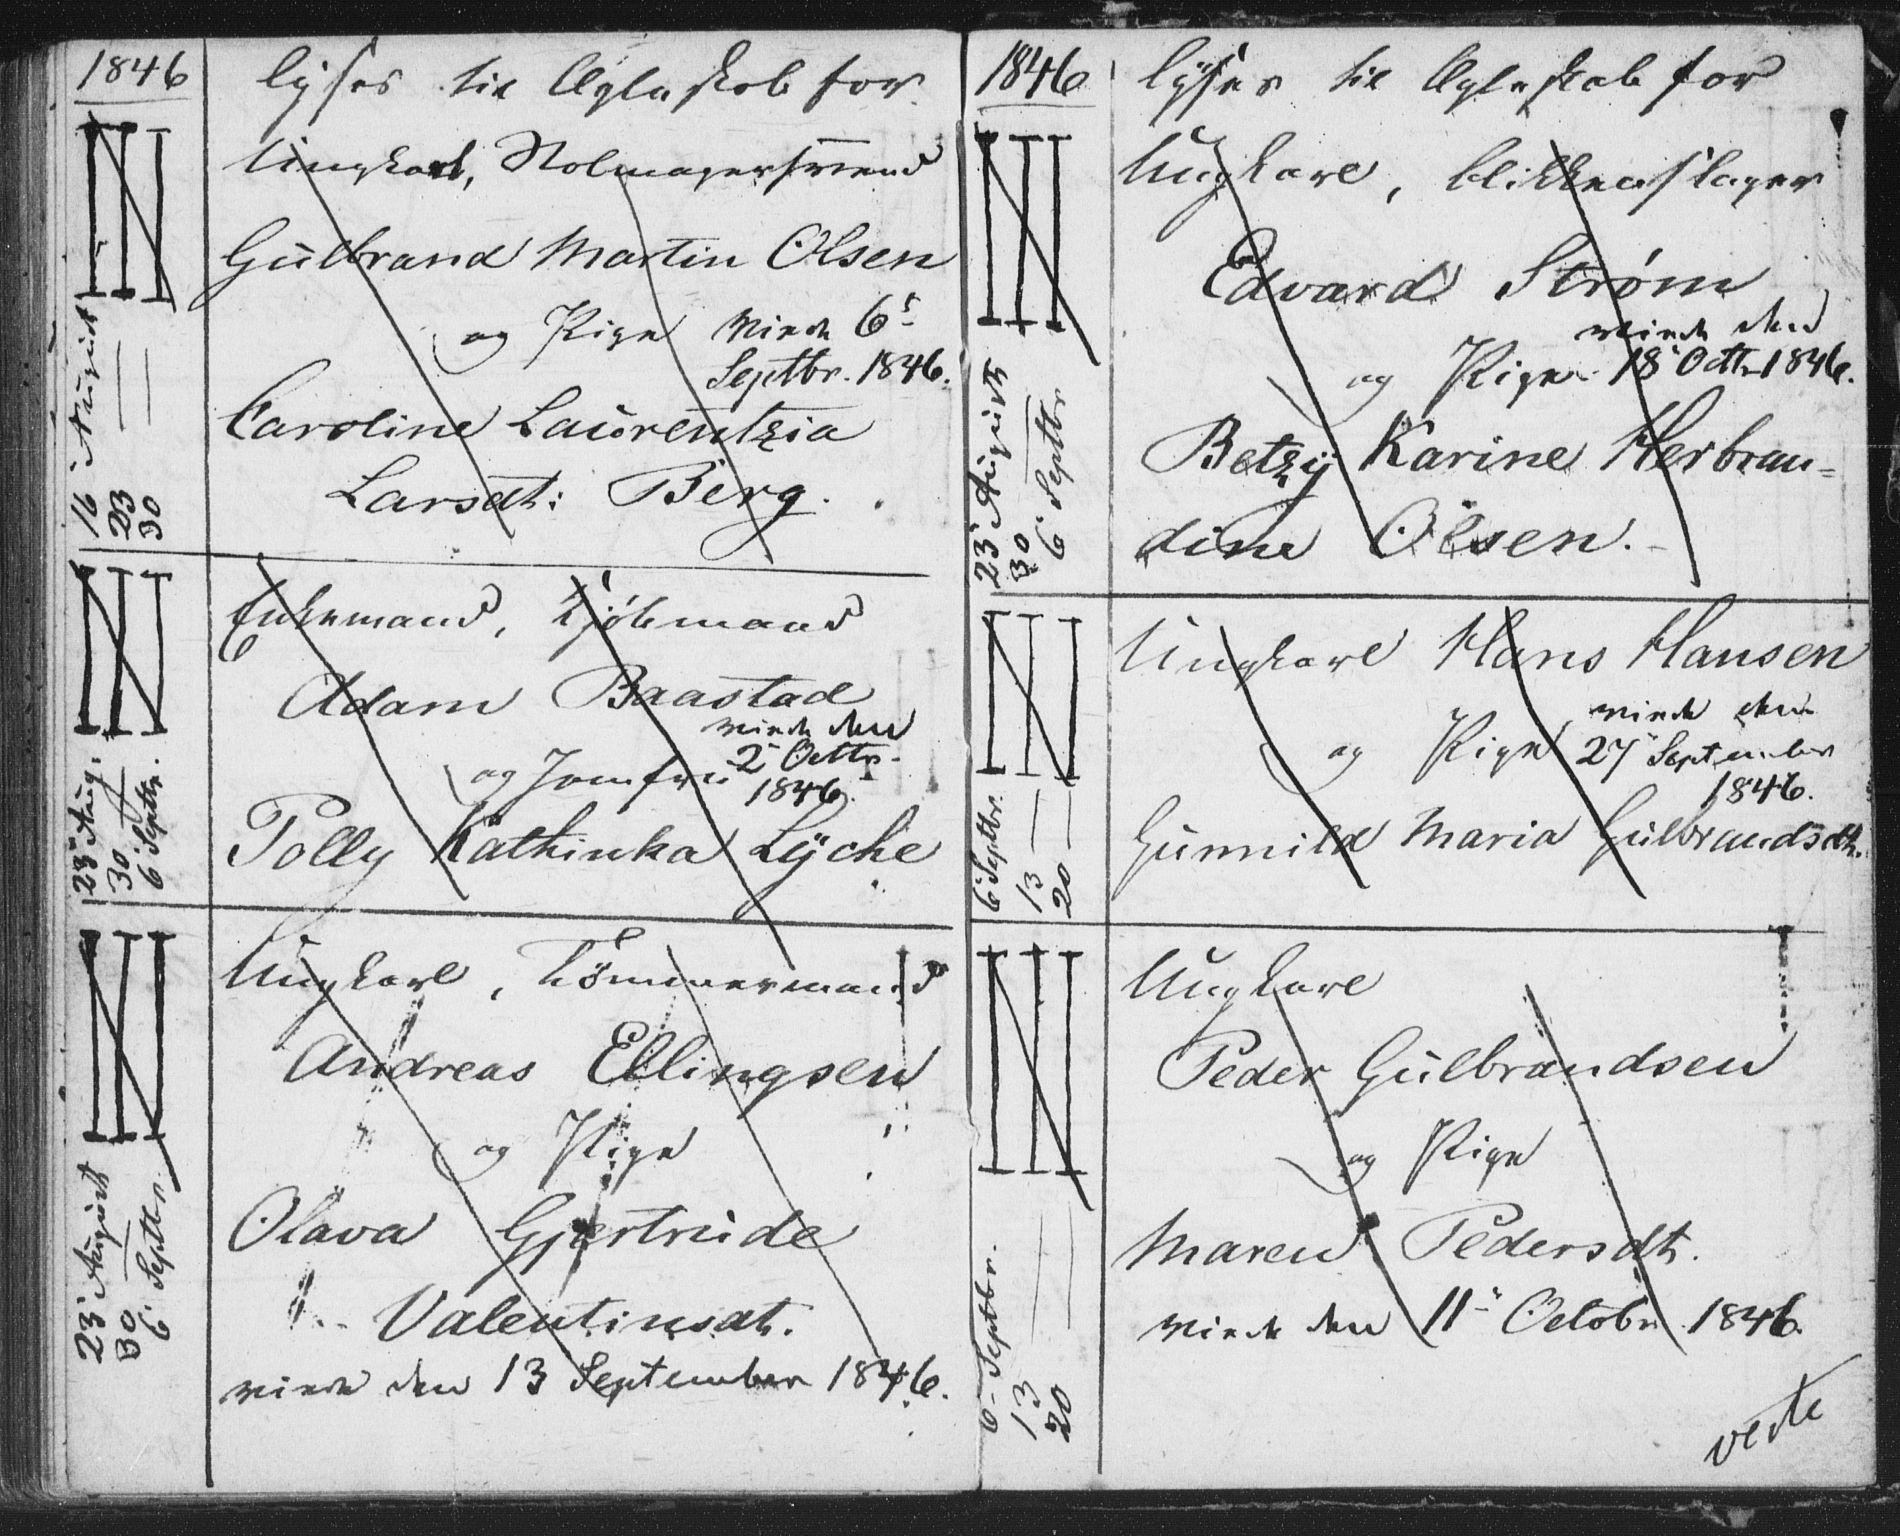 1846
lyses til Ægteskab for
Ungkarl, Stolmagersvend
Gulbrand Martin Olsen
og Pige viede 6.
Septbr. 1846.
Caroline Laurentzia
Larsdt: Berg.
16 August
23 — —
30 — —
Enkemand, Kjøbmand
Adam Baastad
viede den
og Jomfru 2 Octbr.
1846.
Polly Kathinka Lyche
23 Aug.
30 —
6 Septbr.
Ungkarl, Tömmermand
Andreas Ellingsen
og Pige
Olava Gjertrude
Valentinsdt.
viede den 13 September 1846.
23 August
30 —
6 Septbr
1846
lyses til Ægteskab for
Ungkarl, blikkenslager
Edvard Strøm
viede den
og Pige 18 Octbr 1846.
Betzy Karine Herbran=
dine Olsen.
23 August
30 —
6 Septbr
Ungkarl Hans Hansen
viede den
og Pige 27 September
1846.
Gunnild Maria Gulbrandsdt.
6 Septbr.
13 —
20 —
Ungkarl
Peder Gulbrandsen
og Pige
Maren Pedersdt.
viede den 11 Octobr 1846.
6 Septbr.
13 —
20 —